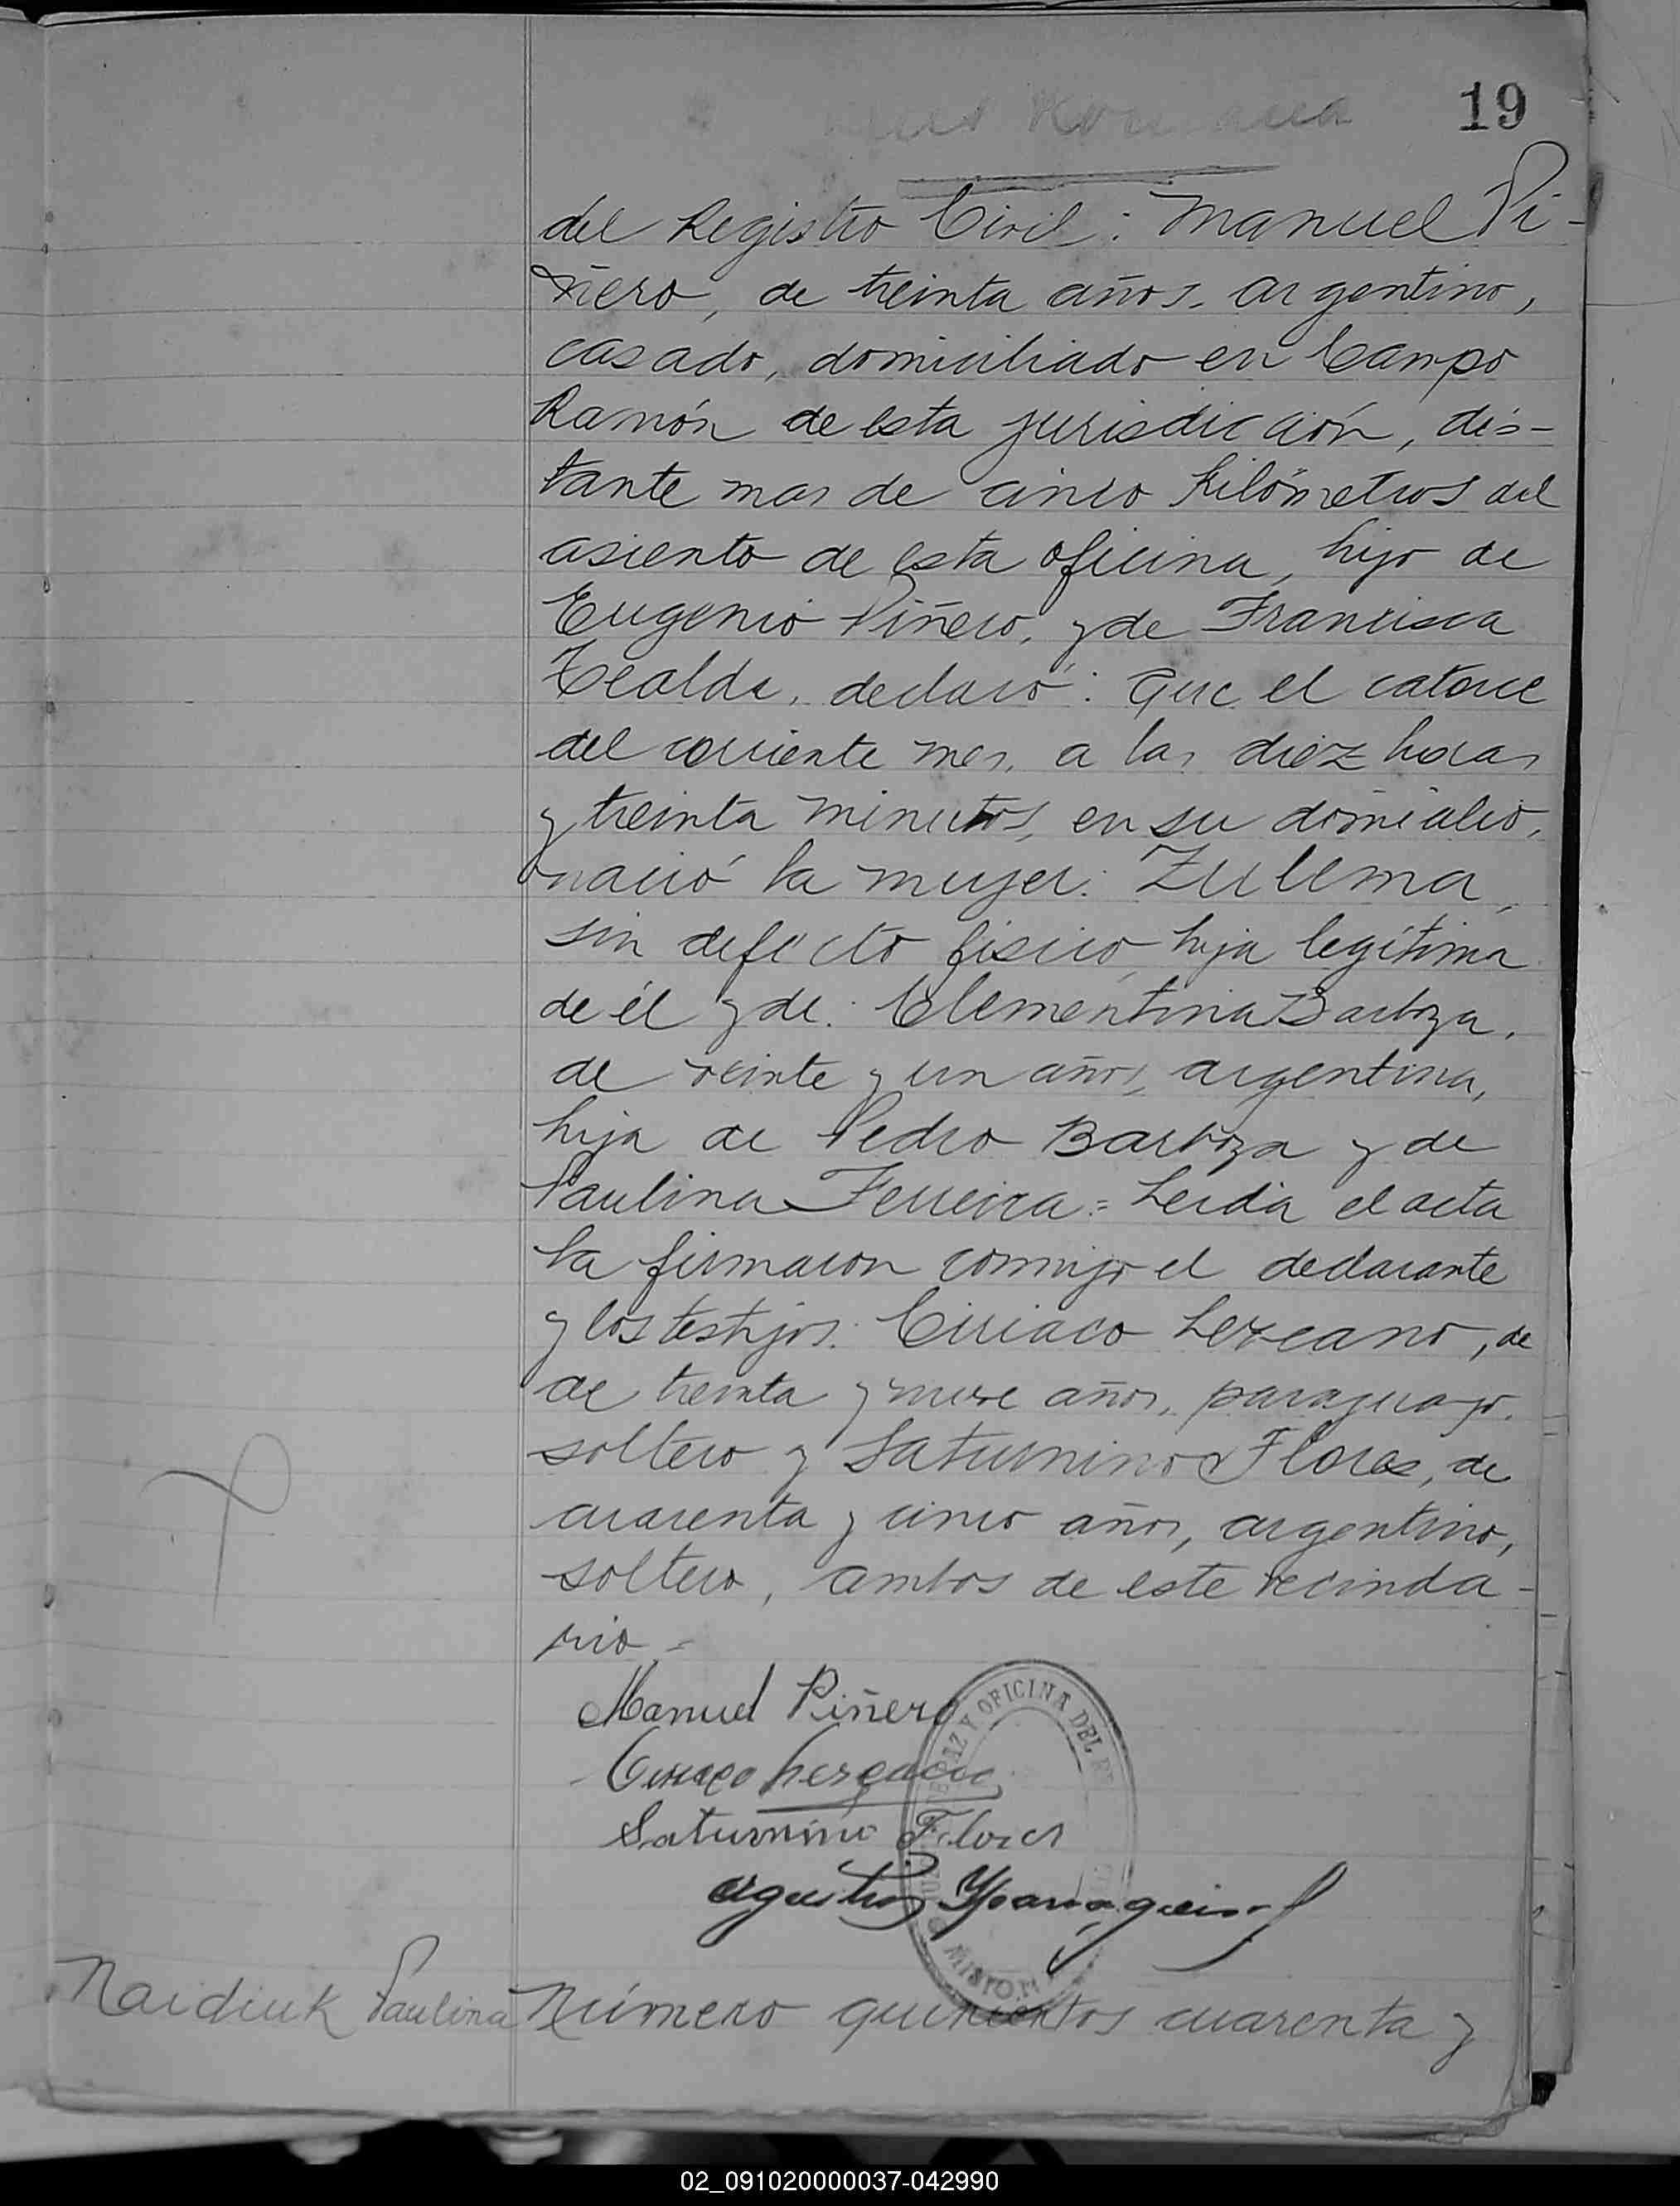 19
del Registro Civil: Manuel Pi-
ñero, de treinta años, argentino,
casado, domiciliado en Campo
Ramón de esta jurisdicción, dis-
tante mas de cinco kilómetros del
asiento de esta oficina, hijo de
Eugenio Piñero, y de Francisca
declaró: Que el catorce
del corriente mes, a las diez horas
y treinta minutos, en su domicilio,
nació la mujer: Zulema,
sin defecto físico, hija legítima
de él y de: Clementina Barboza,
de veinte y un años, argentina,
hija de Pedro Barboza y de
Paulina Ferreira = Leida el acta
la firmaron conmigo el declarante
y los testigos: Ciriaco Lezcano, de
de treinta y nueve años, paraguayo,
soltero y Saturnino Flores, de
cuarenta y cinco años, argentino,
soltero, ambos de este vecinda-
rio -
Manuel Piñero
Ciriaco Lezcano
Saturnino Flores
PAZ Y OFICINA DEL RE
MISION
Naidiuk Paulina Número quinientos cuarenta y
02_091020000037-042990